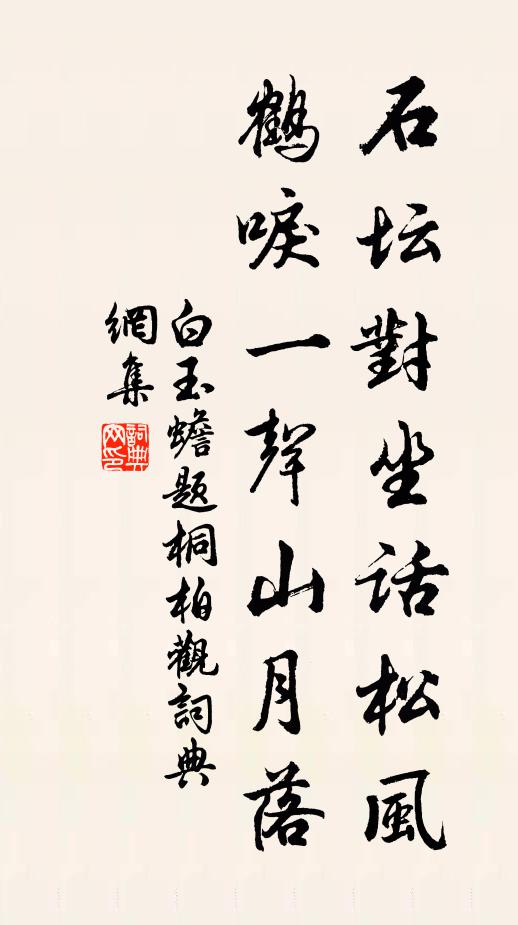 石坛對坐話松風
鶴唳一聲山月落
白玉蟾题桐柏觀詞典
網集
詞典
网印